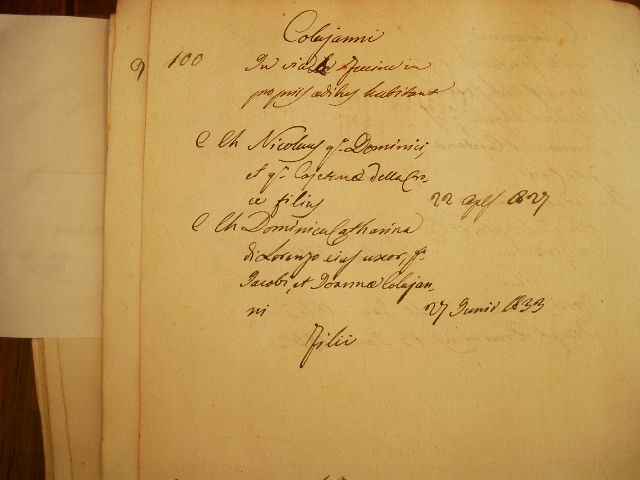 Colajanni
9 100 In via Fucine in
propriis ædibus habitant
C Ch Nicolaus q.m Dominici,
et q.m Cajetanæ della Cro-
ce filius 22 1827
C Ch Dominica Catharina
di Lorenzo ejus uxor, f.
Jacobi, et Joannæ Colajan-
ni 27 Junii 1833
Filii